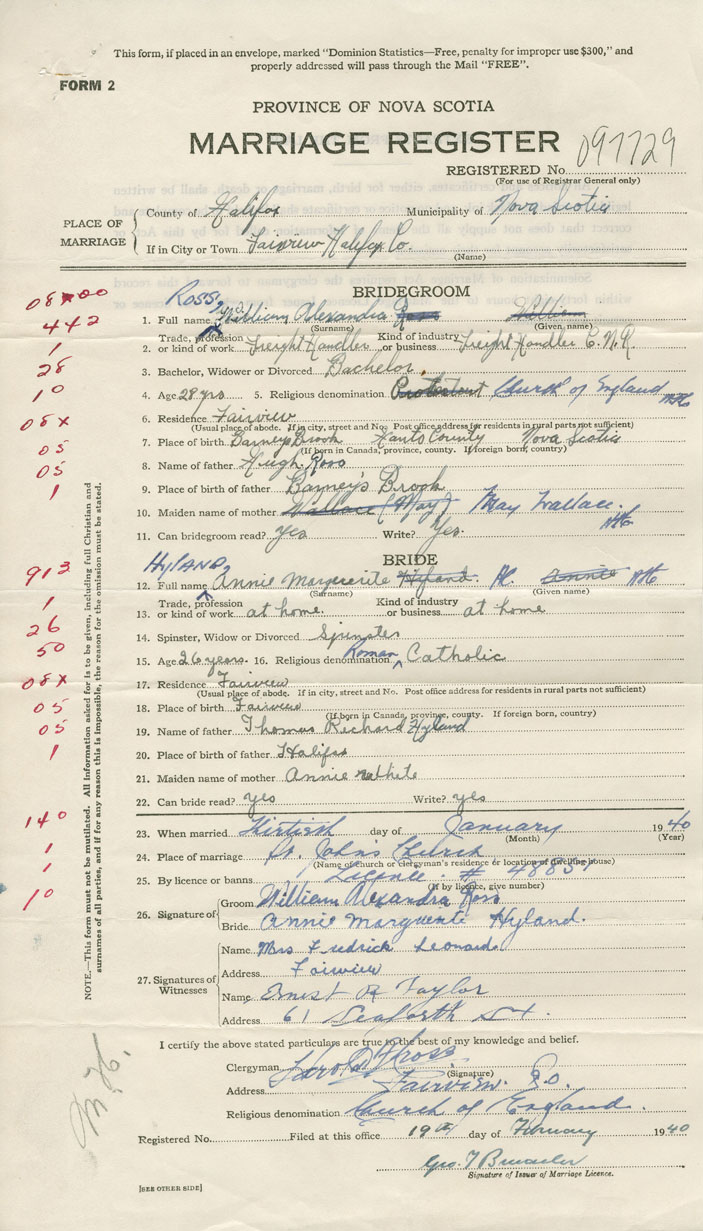 This form, if placed in an envelope, marked "Dominion Statistics—Free, penalty for improper use $300," and
properly addressed will pass through the Mail "FREE".
FORM 2
PROVINCE OF NOVA SCOTIA
MARRIAGE REGISTER
097729
REGISTERED No.
(For use of Registrar General only)
PLACE OF MARRIAGE
County of Halifax Municipality of Nova Scotia
If in City or Town Fairview Halifax Co.
(Name)
BRIDEGROOM
08x00
ROSS
442
1. Full name William Alexandra Ross William
(Surname) (Given name)
1
Trade, profession Kind of industry
2. or kind of work Freight Handler or business Freight Handler C.N.R.
28
3. Bachelor, Widower or Divorced Bachelor.
10
4. Age 28 yrs 5. Religious denomination Protestant Church of England
08x
6. Residence Fairview
(Usual place of abode. If in city, street and No. Post office address for residents in rural parts not sufficient)
05
7. Place of birth Barneys Brook Hants County Nova Scotia
(If born in Canada, province, county. If foreign born, country)
05
8. Name of father Hugh Ross
1
9. Place of birth of father Barney's Brook
10. Maiden name of mother Wallace (May) May Wallace.
11. Can bridegroom read? yes Write? Yes.
BRIDE
HYLAND
913
12. Full name Annie Marguerite Hyland. Annie
(Surname) (Given name)
1
Trade, profession Kind of industry
13. or kind of work at home. or business at home
26
14. Spinster, Widow or Divorced Spinster
50
15. Age 26 years. 16. Religious denomination Roman Catholic
08x
17. Residence Fairview
(Usual place of abode. If in city, street and No. Post office address for residents in rural parts not sufficient)
05
18. Place of birth Fairview
(If born in Canada, province, county. If foreign born, country)
05
19. Name of father Thomas Richard Hyland
1
20. Place of birth of father Halifax
21. Maiden name of mother Annie White
22. Can bride read? yes Write? yes
140
23. When married day of January 1940
(Month) (Year)
1
24. Place of marriage St. John's Church
(Name of church or clergyman's residence or location of dwelling house)
1
25. By licence or banns. Licence #
(If by licence, give number)
10
26. Signature of
Groom William Alexandra Ross
Bride Annie Marguerite Hyland.
27. Signatures of Witnesses
Name Mrs Fredrick Leonard
Address Fairview
Name Ernest R Taylor
Address 61 Seaforth St.
NOTE.—This form must not be mutilated. All information asked for is to be given, including full Christian and
surnames of all parties, and if for any reason this is impossible, the reason for the omission must be stated.
I certify the above stated particulars are true to the best of my knowledge and belief.
Clergyman
(Signature)
Address Fairview. P.O.
Religious denomination Church of England.
Registered No. Filed at this office 19th day of February 1940
Signature of Issuer of Marriage Licence.
[SEE OTHER SIDE]